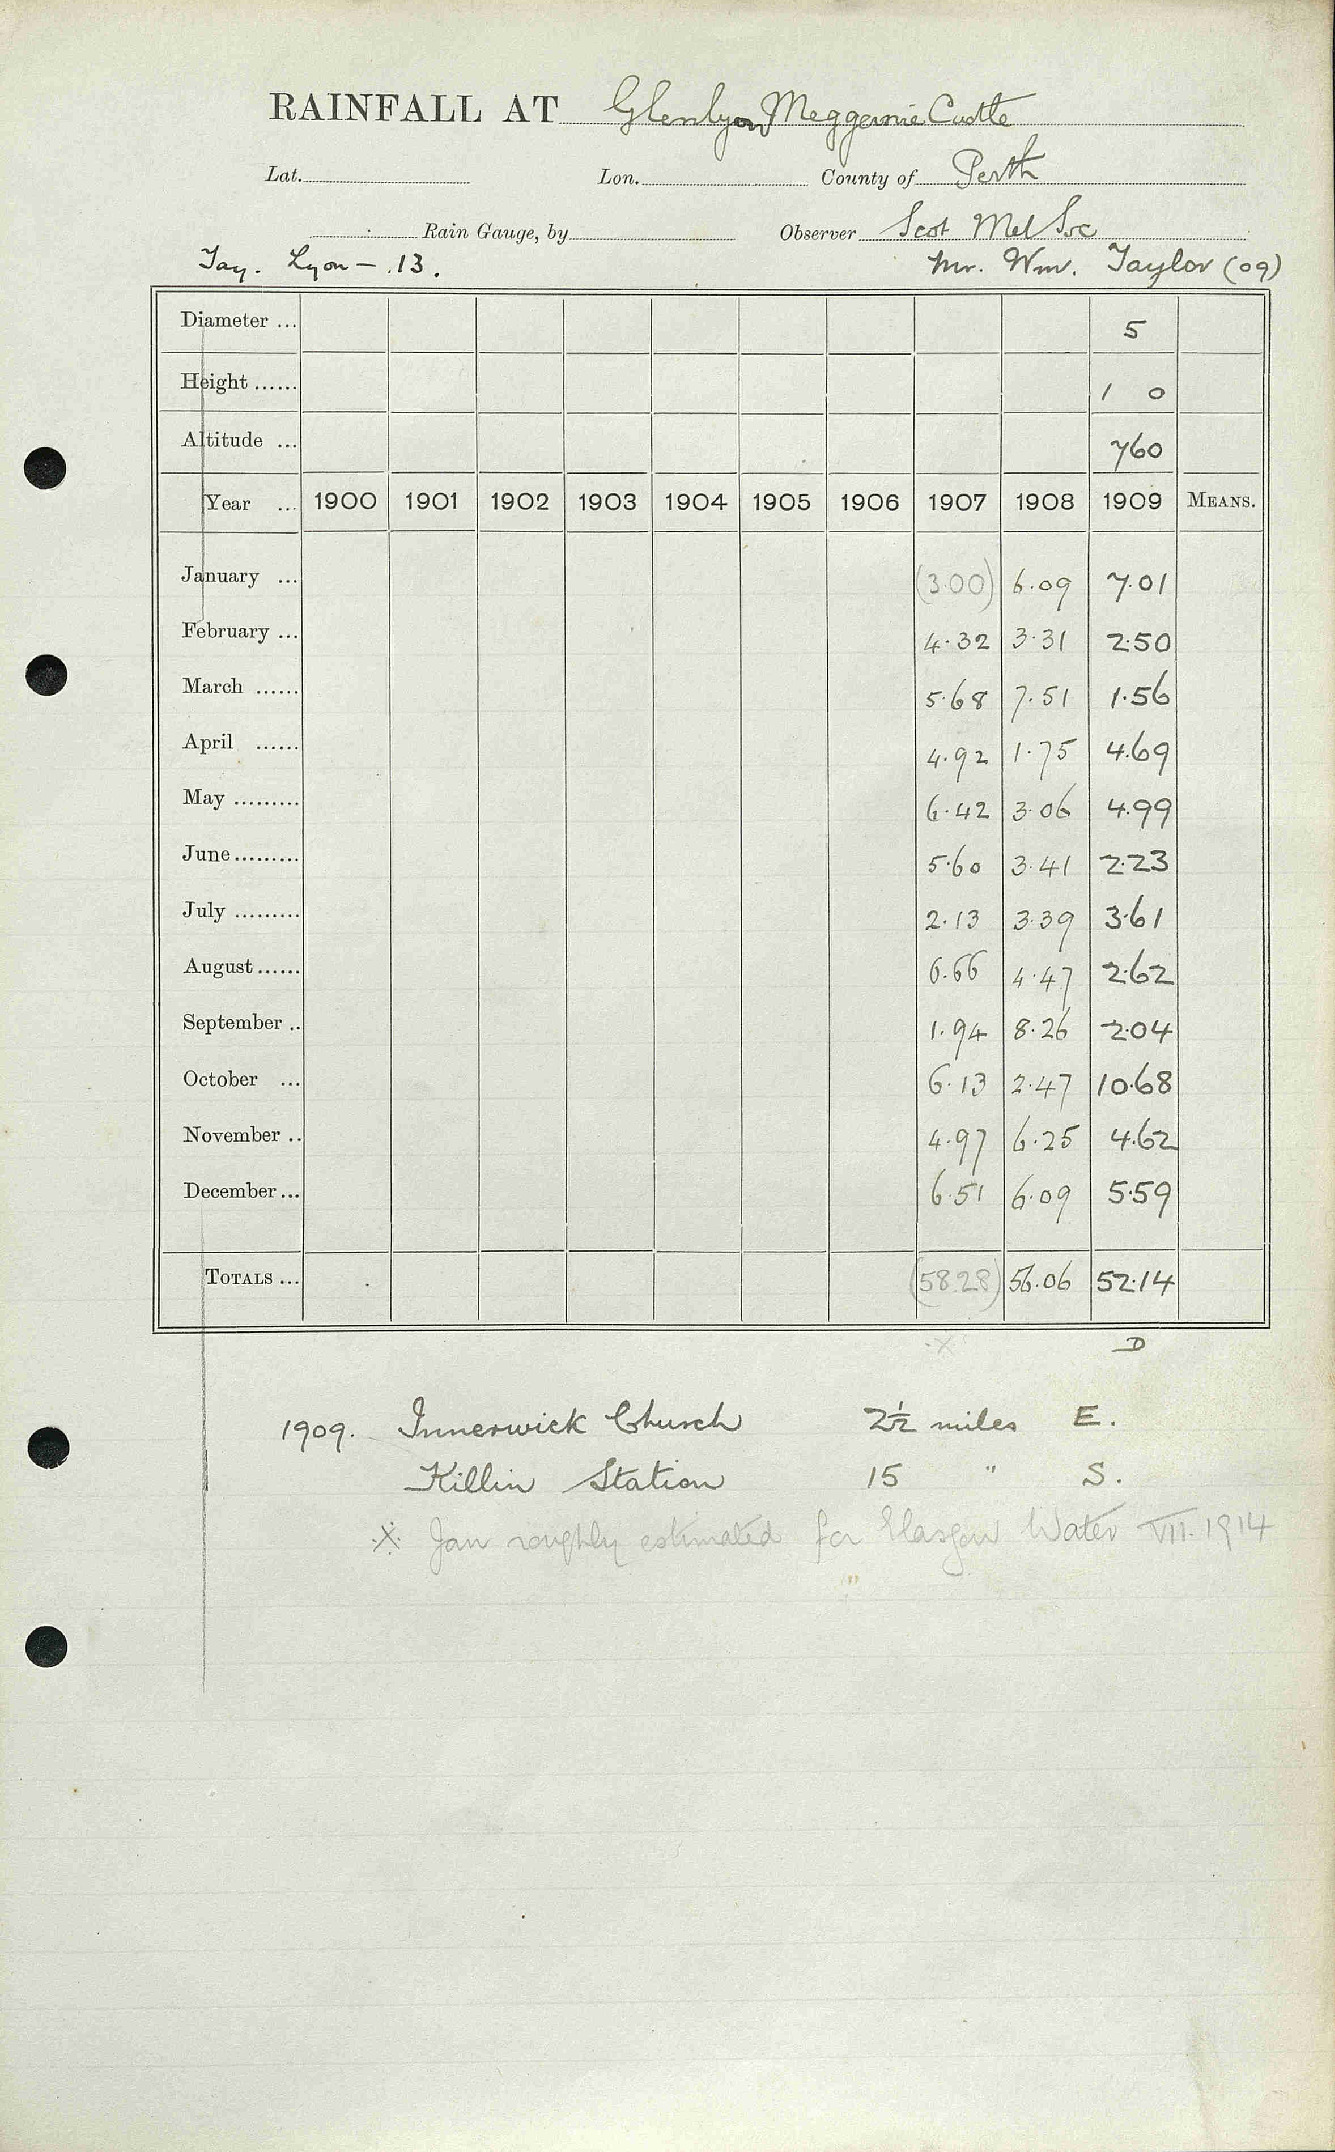 RAINFALL AT Glenlyon Meggernie Castle
Lat. Lon. County of Perth
Rain Gauge, by Observer Scot Met Soc
Tay. Lyon – 13. Mr. Wm. Taylor (09)
Diameter ... 5
Height ...... 1 0
Altitude ... 760
Year ... 1900 1901 1902 1903 1904 1905 1906 1907 1908 1909 MEANS.
January ... (3.00) 6.09 7.01
February ... 4.32 3.31 2.50
March ...... 5.68 7.51 1.56
April ...... 4.92 1.75 4.69
May ......... 6.42 3.06 4.99
June ......... 5.60 3.41 2.23
July ......... 2.13 3.39 3.61
August ...... 6.66 4.47 2.62
September .. 1.94 8.26 2.04
October ... 6.13 2.47 10.68
November .. 4.97 6.25 4.62
December ... 6.51 6.09 5.59
TOTALS ... (58.28) 56.06 52.14
x D
1909. Innerwick Church 2½ miles E.
Killin Station 15 " S.
x Jan roughly estimated for Glasgow Water VII. 1914